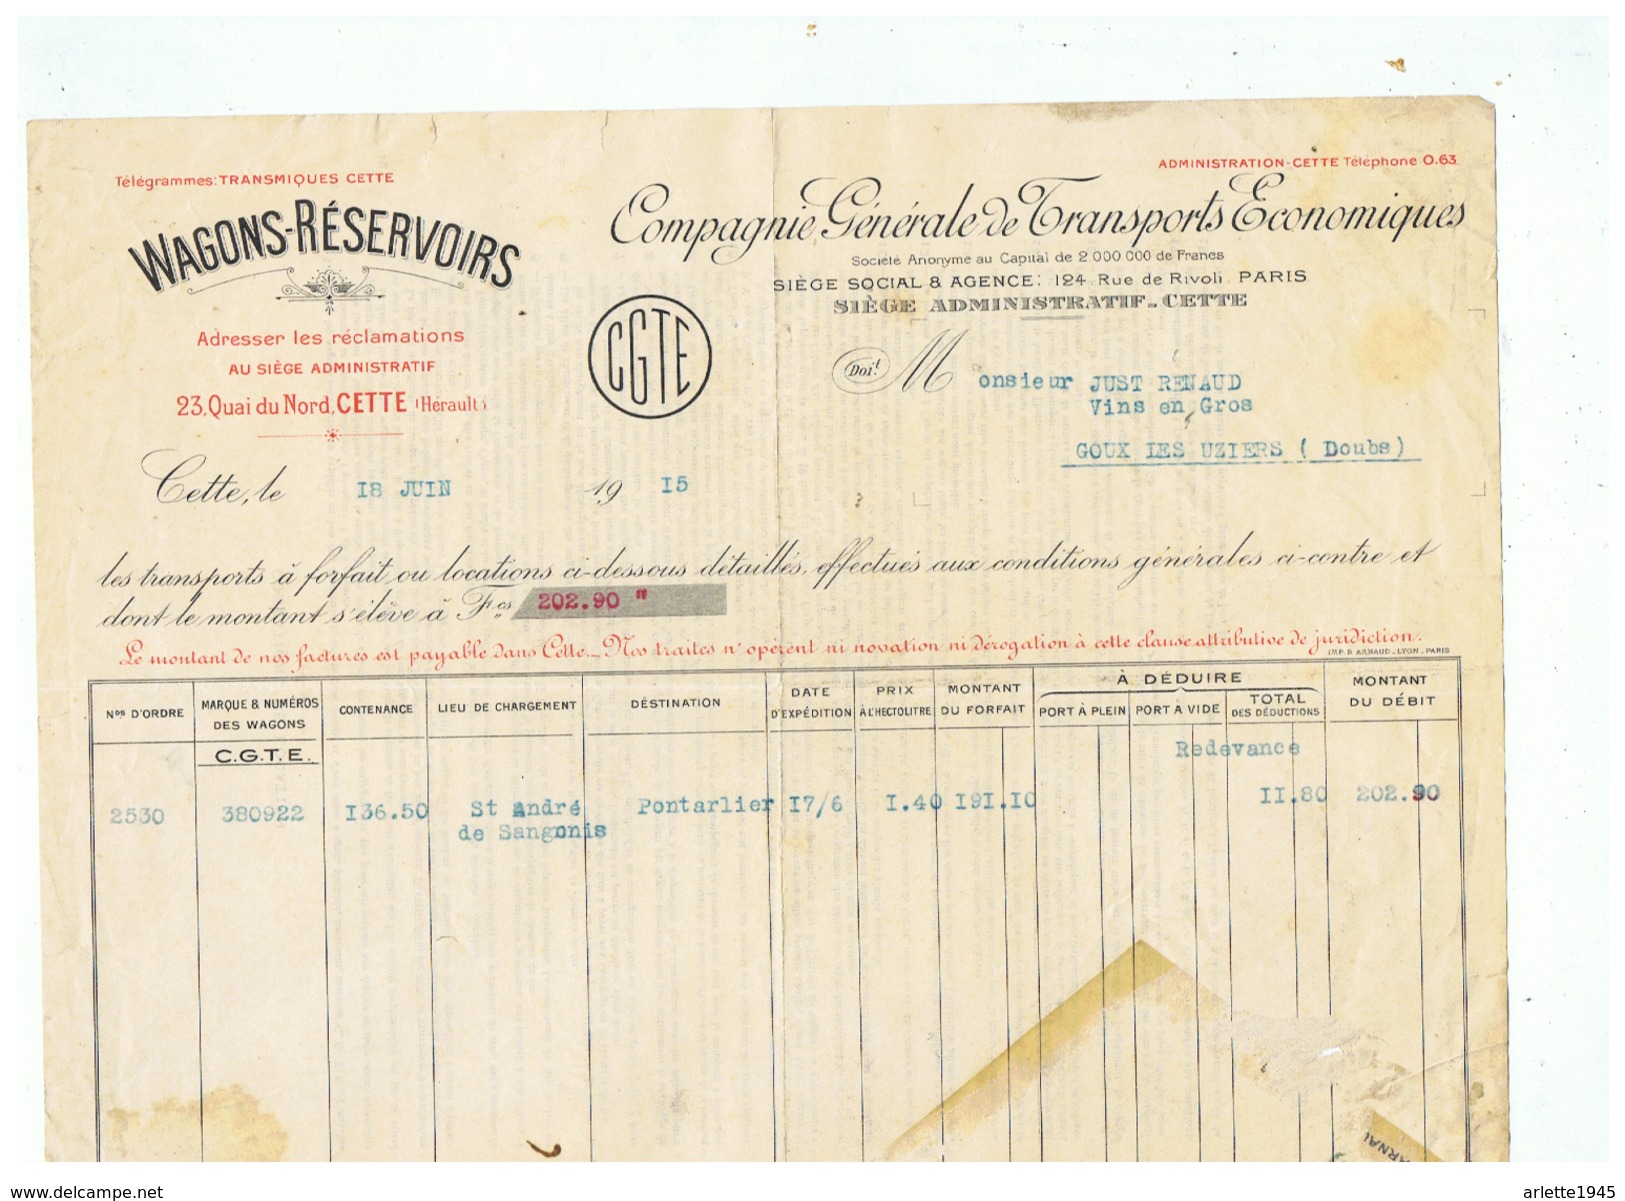 Télégrammes: TRANSMIQUES CETTE
ADMINISTRATION-CETTE Téléphone 0.63
WAGONS-RÉSERVOIRS
Compagnie Générale de Transports Economiques
Société Anonyme au Capital de 2.000.000 de Francs
SIÈGE SOCIAL & AGENCE: 124. Rue de Rivoli. PARIS
SIÈGE ADMINISTRATIF-CETTE
Adresser les réclamations
AU SIÈGE ADMINISTRATIF
23, Quai du Nord, CETTE (Hérault)
CGTE
Doit
Monsieur JUST RENAUD
Vins en Gros
GOUX LES UZIERS ( Doubs)
Cette, le I8 JUIN 19 I5
les transports à forfait ou locations ci-dessous détaillés, effectués aux conditions générales ci-contre et
dont le montant s'élève à Fcs 202.90 "
Le montant de nos factures est payable dans Cette._Nos traites n'opèrent ni novation ni dérogation à cette clause attributive de juridiction.
IMP. B. ARNAUD_LYON_PARIS
Nos D'ORDRE
MARQUE & NUMÉROS DES WAGONS
CONTENANCE
LIEU DE CHARGEMENT
DÉSTINATION
DATE D'EXPÉDITION
PRIX À L'HECTOLITRE
MONTANT DU FORFAIT
À DÉDUIRE
PORT À PLEIN
PORT À VIDE
TOTAL DES DÉDUCTIONS
MONTANT DU DÉBIT
C.G.T.E.
Redevance
2530 380922 I36.50 St André Pontarlier I7/6 I.40 I9I.I0 II.80 202.90
de Sangonis
ARNAL
www.delcampe.net
arlette1945